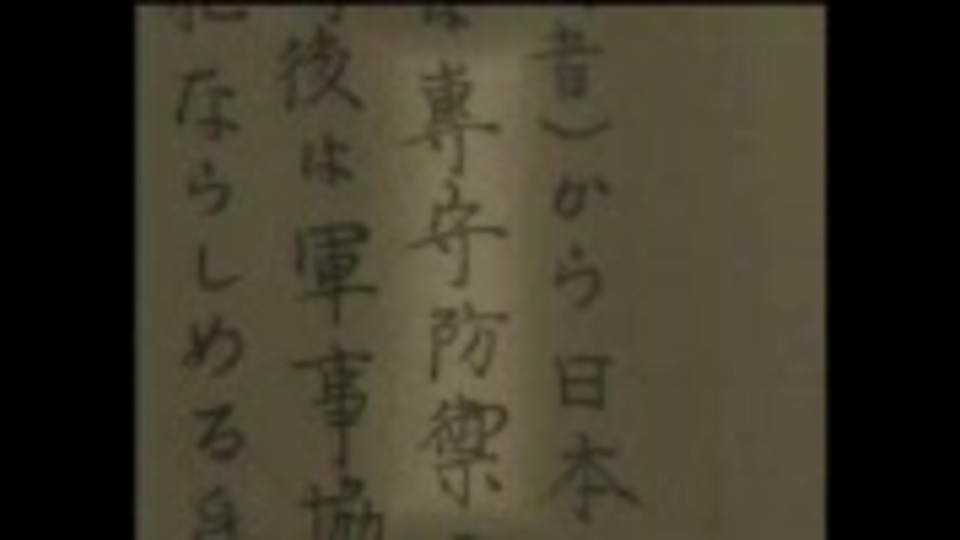 昔）から日本
は専守防禦
後は軍事協
ならしめる